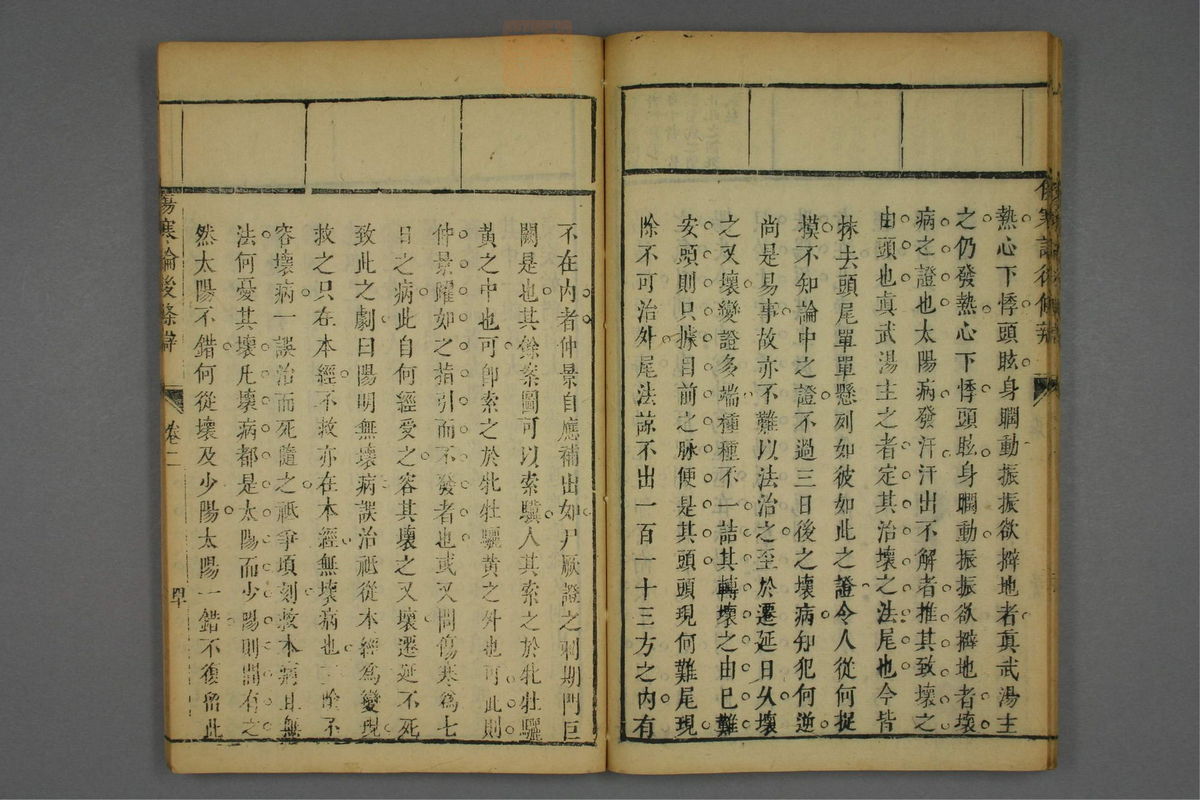 熱心下悸頭眩身瞤動振振欲擗地者真武湯主
之仍發熱心下悸頭眩身瞤動振振欲擗地者壞
病之證也太陽病發汗汗出不解者推其致壞之
由頭也真武湯主之者定其治壞之法尾也今皆
抹去頭尾單單懸列如彼如此之證令人從何捉
摸不知論中之證不過三日後之壞病知犯何逆
尚是易事故亦不難以法治之至於遷延日久壞
之又壞變證多端種種不一詰其轉壞之由已難
安頭則只據目前之脉便是其頭頭現何難尾現
除不可治外尾法諒不出一百一十三方之內有
不在內者仲景自應補出如尸厥證之刺期門巨
闕是也其餘案圖可以索驥人其索之於牝牡驪
黃之中也可卽索之於牝牡驪黃之外也可此則
仲景躍如之指引而不發者也或又問傷寒為七
日之病此自何經受之容其壞之又壞遷延不死
致此之劇曰陽明無壞病誤治祗從本經為變現
救之只在本經不救亦在本經無壞病也三陰不
容壞病一誤治而死隨之祗爭頃刻救本病且無
法何憂其壞凡壞病都是太陽而少陽則間有之
然太陽不錯何從壞及少陽太陽一錯不復留此
傷寒論後條辯
卷二